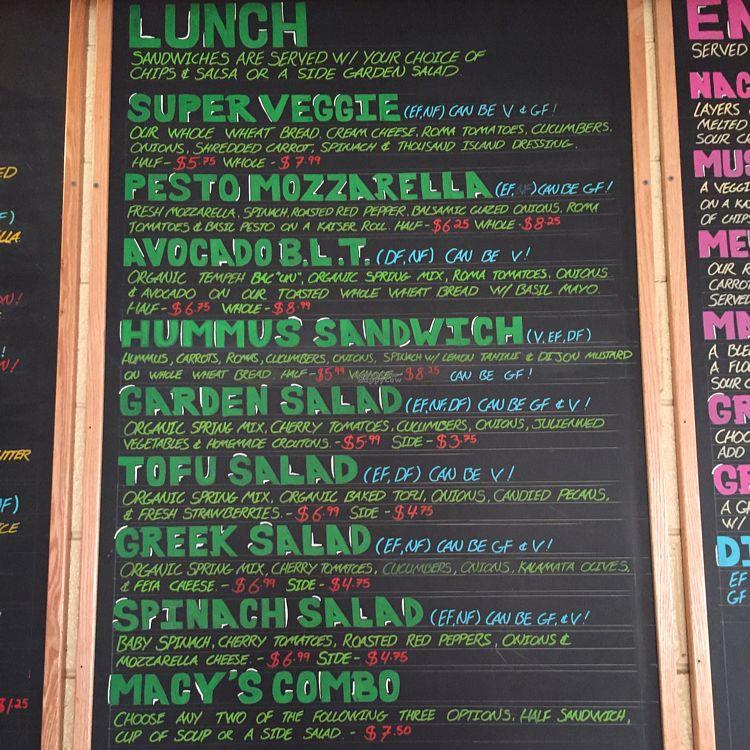 LUNCH
SANDWICHES ARE SERVED W/ YOUR CHOICE OF
CHIPS & SALSA OR A SIDE GARDEN SALAD.
SUPER VEGGIE (EF,NF) CAN BE V & GF!
OUR WHOLE WHEAT BREAD, CREAM CHEESE, ROMA TOMATOES, CUCUMBERS,
ONIONS, SHREDDED CARROT, SPINACH & THOUSAND ISLAND DRESSING.
HALF - $5.75 WHOLE - $7.99
PESTO MOZZARELLA (EF, NF) CAN BE GF!
FRESH MOZZARELLA, SPINACH, ROASTED RED PEPPER, BALSAMIC GLAZED ONIONS, ROMA
TOMATOES & BASIL PESTO ON A KAISER ROLL. HALF - $6.25 WHOLE - $8.25
AVOCADO B.L.T. (DF, NF) CAN BE V!
ORGANIC TEMPEH BAC"UN", ORGANIC SPRING MIX, ROMA TOMATOES, ONIONS
& AVOCADO ON OUR TOASTED WHOLE WHEAT BREAD W/ BASIL MAYO.
HALF - $6.75 WHOLE - $8.99
HUMMUS SANDWICH (V, EF, DF)
HUMMUS, CARROTS, ROMAS, CUCUMBERS, ONIONS, SPINACH W/ LEMON TAHINI & DIJON MUSTARD
ON WHOLE WHEAT BREAD. HALF - $5.99 WHOLE - $8.25 CAN BE GF!
GARDEN SALAD (EF,NF,DF) CAN BE GF & V!
ORGANIC SPRING MIX, CHERRY TOMATOES, CUCUMBERS, ONIONS, JULIENNED
VEGETABLES & HOMEMADE CROUTONS. - $5.99 SIDE - $3.75
TOFU SALAD (EF, DF) CAN BE V!
ORGANIC SPRING MIX, ORGANIC BAKED TOFU, ONIONS, CANDIED PECANS,
& FRESH STRAWBERRIES. - $6.99 SIDE - $4.75
GREEK SALAD (EF,NF) CAN BE GF & V!
ORGANIC SPRING MIX, CHERRY TOMATOES, CUCUMBERS, ONIONS, KALAMATA OLIVES,
& FETA CHEESE. - $6.99 SIDE - $4.75
SPINACH SALAD (EF,NF) CAN BE GF, & V!
BABY SPINACH, CHERRY TOMATOES, ROASTED RED PEPPERS, ONIONS &
MOZZARELLA CHEESE. - $6.99 SIDE - $4.75
MACY'S COMBO
CHOOSE ANY TWO OF THE FOLLOWING THREE OPTIONS. HALF SANDWICH,
CUP OF SOUP OR A SIDE SALAD. - $7.50
SERVED
LAYERS
MELTED
A VEGGI
ON A KA
OF CHIPS
OUR
CARROT
SERVE
A BLE
A FLO
SOUR C
CHOO
ADD
A G
W/
EF
GF
$1.25